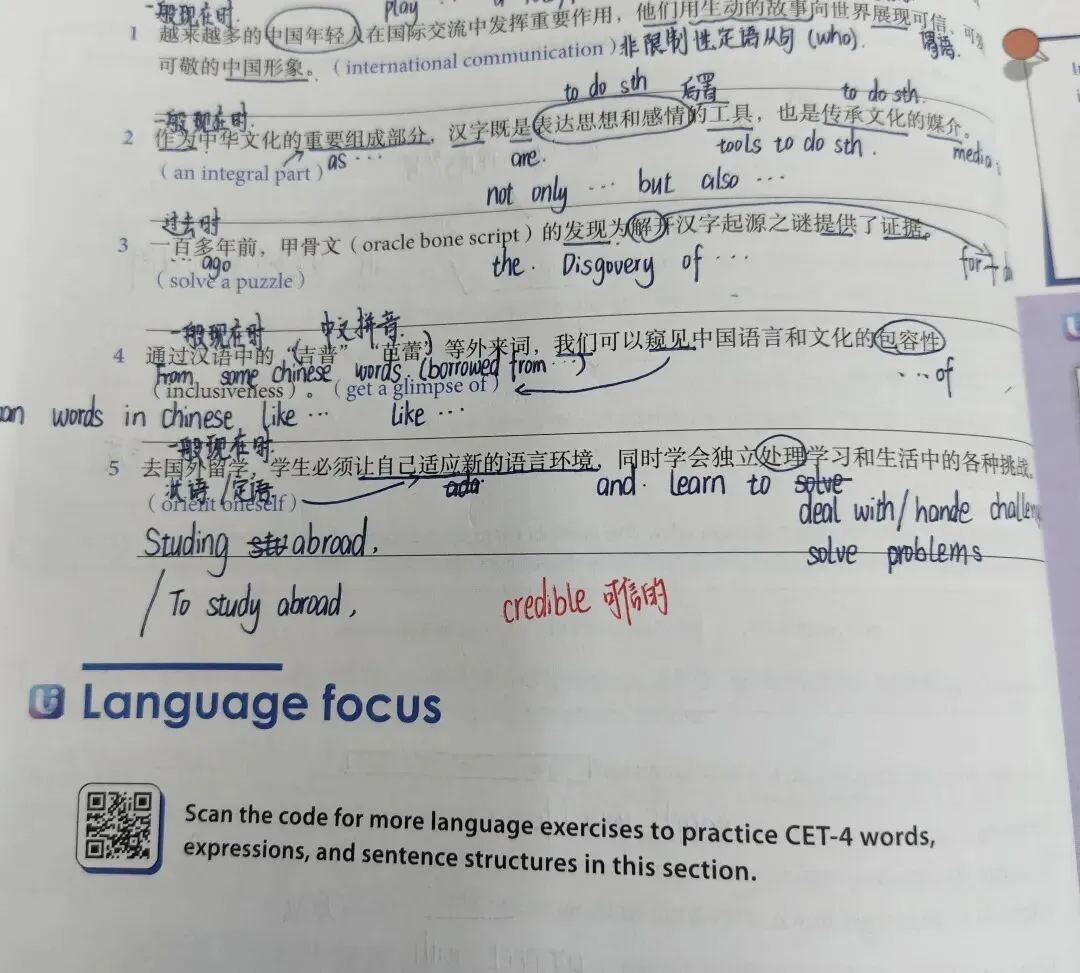 一般现在时.
play
1 越来越多的中国年轻人在国际交流中发挥重要作用，他们用生动的故事向世界展现可信、可
可敬的中国形象。（international communication）非限制性定语从句 (who). 谓语.
to do sth 后置 to do sth.
一般现在时.
2 作为中华文化的重要组成部分，汉字既是表达思想和感情的工具，也是传承文化的媒介。
（an integral part） as ... are. tools to do sth. media
not only ... but also ...
过去时
3 一百多年前，甲骨文（oracle bone script）的发现为解开汉字起源之谜提供了证据。
... ago the. Disgovery of ... for
（solve a puzzle）
一般现在时 中文拼音.
4 通过汉语中的“吉普”“芭蕾”等外来词，我们可以窥见中国语言和文化的包容性
From some chinese words (borrowed from ...) ... of
（inclusiveness）。（get a glimpse of）
words in chinese, like ... like ...
一般现在时.
5 去国外留学，学生必须让自己适应新的语言环境，同时学会独立处理学习和生活中的各种挑战。
状语/定语 ada and. learn to solve
（orient oneself） deal with/hande challen
Studing stu abroad, solve problems
/To study abroad, credible 可信的
Language focus
Scan the code for more language exercises to practice CET-4 words,
expressions, and sentence structures in this section.